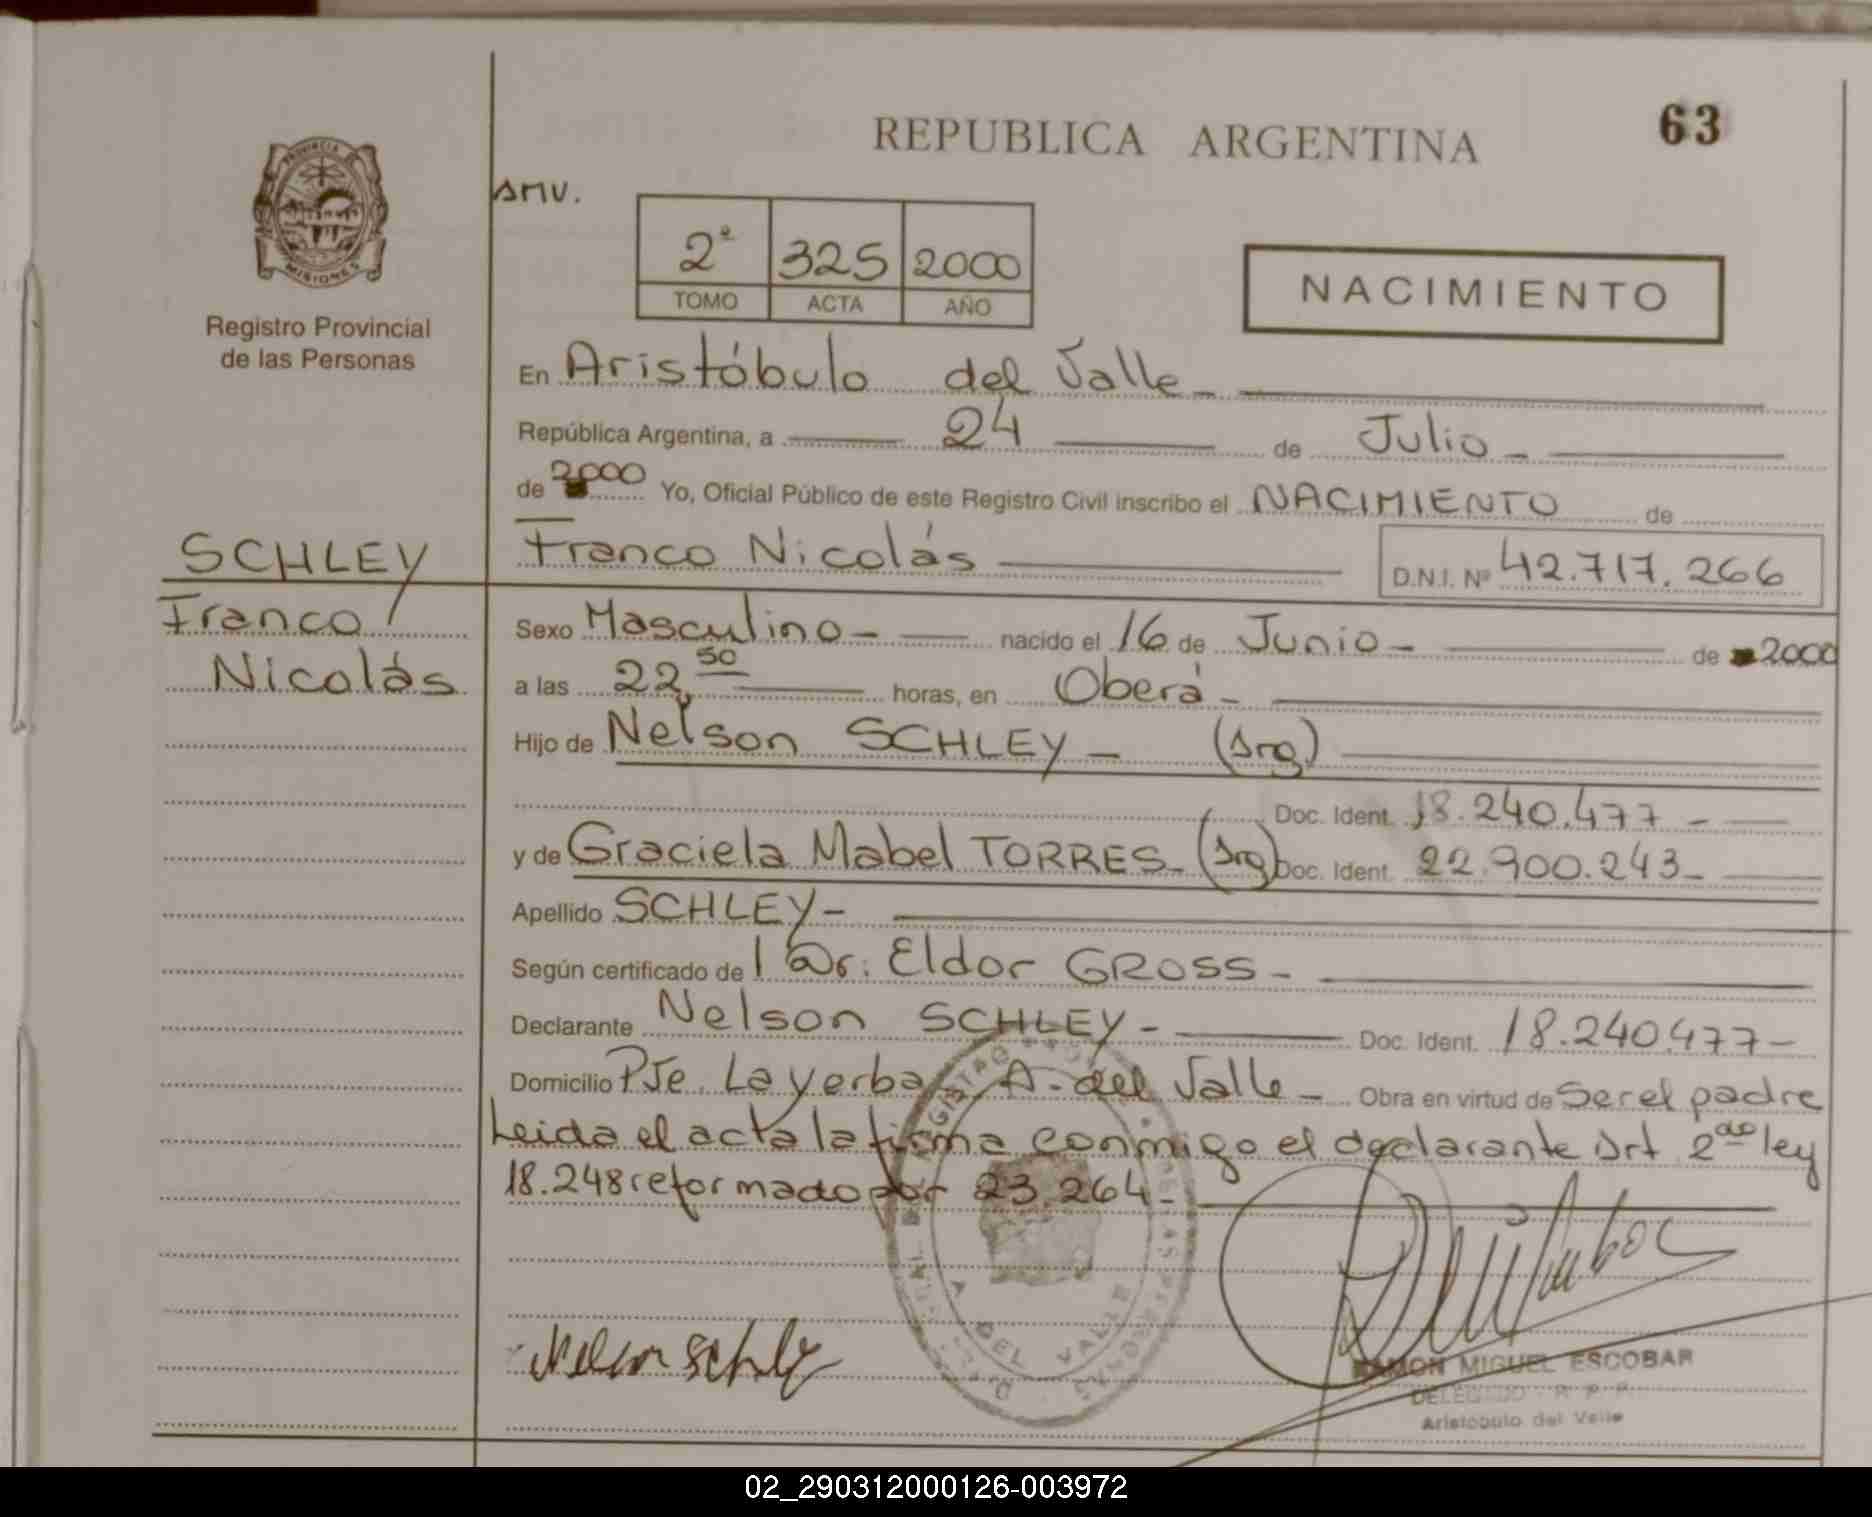 63
REPUBLICA ARGENTINA
PROVINCIA DE
MISIONES
Registro Provincial
de las Personas
AMV.
2º 325 2000
TOMO ACTA AÑO
NACIMIENTO
En Aristóbulo del Valle -
República Argentina, a 24 de Julio -
de 2000 Yo, Oficial Público de este Registro Civil inscribo el NACIMIENTO de
SCHLEY
Franco
Nicolás
Franco Nicolás D.N.I. Nº 42.717.266
Sexo Masculino - nacido el 16 de Junio - de 2000
a las 22,50 horas, en Oberá -
Hijo de Nelson SCHLEY - (Arg)
Doc. Ident. 18.240.477 -
y de Graciela Mabel TORRES - (Arg) Doc. Ident. 22.900.243 -
Apellido SCHLEY -
Según certificado de l Dr. Eldor GROSS -
Declarante Nelson SCHLEY - Doc. Ident. 18.240.477 -
Domicilio Pje. La yerba A. del Valle - Obra en virtud de Ser el padre
Leida el acta la firma conmigo el declarante Art 2do ley
18.248 reformado por 23.264 -
Nelson Schley
A. DEL VALLE
RAMON MIGUEL ESCOBAR
DELEGADO R. P. P.
Aristobulo del Valle
02_290312000126-003972